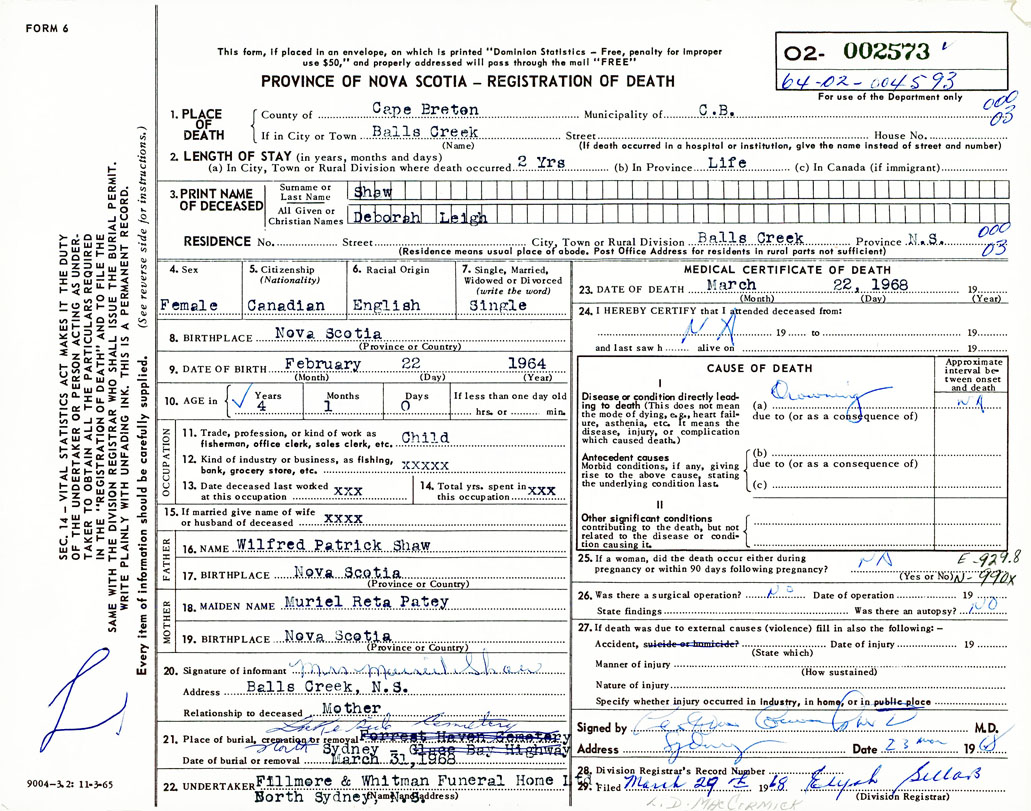 FORM 6
This form, if placed in an envelope, on which is printed "Dominion Statistics – Free, penalty for improper
use $50," and properly addressed will pass through the mail "FREE"
PROVINCE OF NOVA SCOTIA – REGISTRATION OF DEATH
02- 002573
64-02-004593
For use of the Department only
000
03
1. PLACE OF DEATH County of Cape Breton Municipality of C.B.
If in City or Town Balls Creek Street House No.
(Name) (If death occurred in a hospital or institution, give the name instead of street and number)
2. LENGTH OF STAY (in years, months and days)
(a) In City, Town or Rural Division where death occurred 2 Yrs (b) In Province Life (c) In Canada (if immigrant)
3. PRINT NAME OF DECEASED
Surname or Last Name Shaw
All Given or Christian Names Deborah Leigh
000
03
RESIDENCE No. Street City, Town or Rural Division Balls Creek Province N.S.
(Residence means usual place of abode. Post Office Address for residents in rural parts not sufficient)
4. Sex
Female
5. Citizenship
(Nationality)
Canadian
6. Racial Origin
English
7. Single, Married,
Widowed or Divorced
(write the word)
Single
8. BIRTHPLACE Nova Scotia
(Province or Country)
9. DATE OF BIRTH February 22 1964
(Month) (Day) (Year)
10. AGE in Years Months Days If less than one day old
4 1 0 hrs. or min.
OCCUPATION
11. Trade, profession, or kind of work as
fisherman, office clerk, sales clerk, etc. Child
12. Kind of industry or business, as fishing,
bank, grocery store, etc. XXXXX
13. Date deceased last worked
at this occupation XXX
14. Total yrs. spent in
this occupation XXX
15. If married give name of wife
or husband of deceased XXXX
FATHER
16. NAME Wilfred Patrick Shaw
17. BIRTHPLACE Nova Scotia
(Province or Country)
MOTHER
18. MAIDEN NAME Muriel Reta Patey
19. BIRTHPLACE Nova Scotia
(Province or Country)
20. Signature of informant Mrs Muriel Shaw
Address Balls Creek, N.S.
Relationship to deceased Mother
Cemetery
21. Place of burial, cremation or removal Forrest Haven Cemetery
North Sydney - Glace Bay Highway
Date of burial or removal March 31, 1968
22. UNDERTAKER Fillmore & Whitman Funeral Home Ltd
North Sydney, N.S.
(Name and address)
MEDICAL CERTIFICATE OF DEATH
23. DATE OF DEATH March 22, 1968 19
(Month) (Day) (Year)
24. I HEREBY CERTIFY that I attended deceased from:
NA 19 to 19
and last saw h alive on 19
CAUSE OF DEATH
Approximate
interval be-
tween onset
and death
I
Disease or condition directly lead-
ing to death (This does not mean
the mode of dying, e.g., heart fail-
ure, asthenia, etc. It means the
disease, injury, or complication
which caused death.)
(a) Drowning NA
due to (or as a consequence of)
Antecedent causes
Morbid conditions, if any, giving
rise to the above cause, stating
the underlying condition last.
(b)
due to (or as a consequence of)
(c)
II
Other significant conditions
contributing to the death, but not
related to the disease or condi-
tion causing it.
25. If a woman, did the death occur either during
pregnancy or within 90 days following pregnancy? NA
(Yes or No)
E-929.8
N-990X
26. Was there a surgical operation? No Date of operation 19
State findings Was there an autopsy? NO
27. If death was due to external causes (violence) fill in also the following: –
Accident, suicide or homicide? Date of injury 19
(State which)
Manner of injury
(How sustained)
Nature of injury
Specify whether injury occurred in industry, in home, or in public place
Signed by M.D.
Address Sydney Date 23 Mar 1968
28. Division Registrar's Record Number
29. Filed March 29th 1968 Elijah Sellars
(Division Registrar)
L.D. MacCormick
SEC. 14 – VITAL STATISTICS ACT MAKES IT THE DUTY
OF THE UNDERTAKER OR PERSON ACTING AS UNDER-
TAKER TO OBTAIN ALL THE PARTICULARS REQUIRED
IN THE "REGISTRATION OF DEATH" AND TO FILE THE
SAME WITH THE DIVISION REGISTRAR WHO SHALL ISSUE THE BURIAL PERMIT.
WRITE PLAINLY WITH UNFADING INK. THIS IS A PERMANENT RECORD.
Every item of information should be carefully supplied. (See reverse side for instructions.)
9004-3.2: 11-3-65